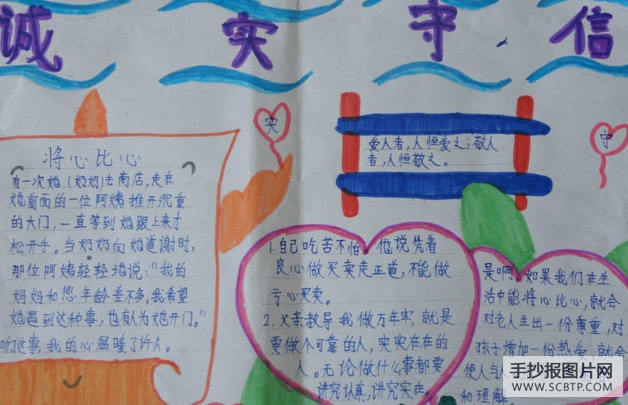 诚实守信
实
守
将心比心
有一次她(奶奶)去商店,走在
她前面的一位阿姨推开沉重
的大门,一直等到她跟上来才
松开手。当奶奶向她道谢时,
那位阿姨轻轻地说:“我的
妈妈和您年龄差不多,我希望
她遇到这种事,也有人为她开门。”
听了这事,我的心温暖了许久。
爱人者,人恒爱之;敬人
者,人恒敬之。
1.自己吃苦不怕,他说凭着
良心做买卖走正道,不能做
亏心买卖。
2.父亲教导我做万年牢,就是
要做个可靠的人,实实在在的
人。无论做什么事都要
讲究认真,讲究实在。
是啊,如果我们在生
活中能将心比心,就会
对老人生出一份尊重,对
孩子增加一份热爱,就会
使人与人
和理解。
手抄报图片网
WWW.SCBTP.COM